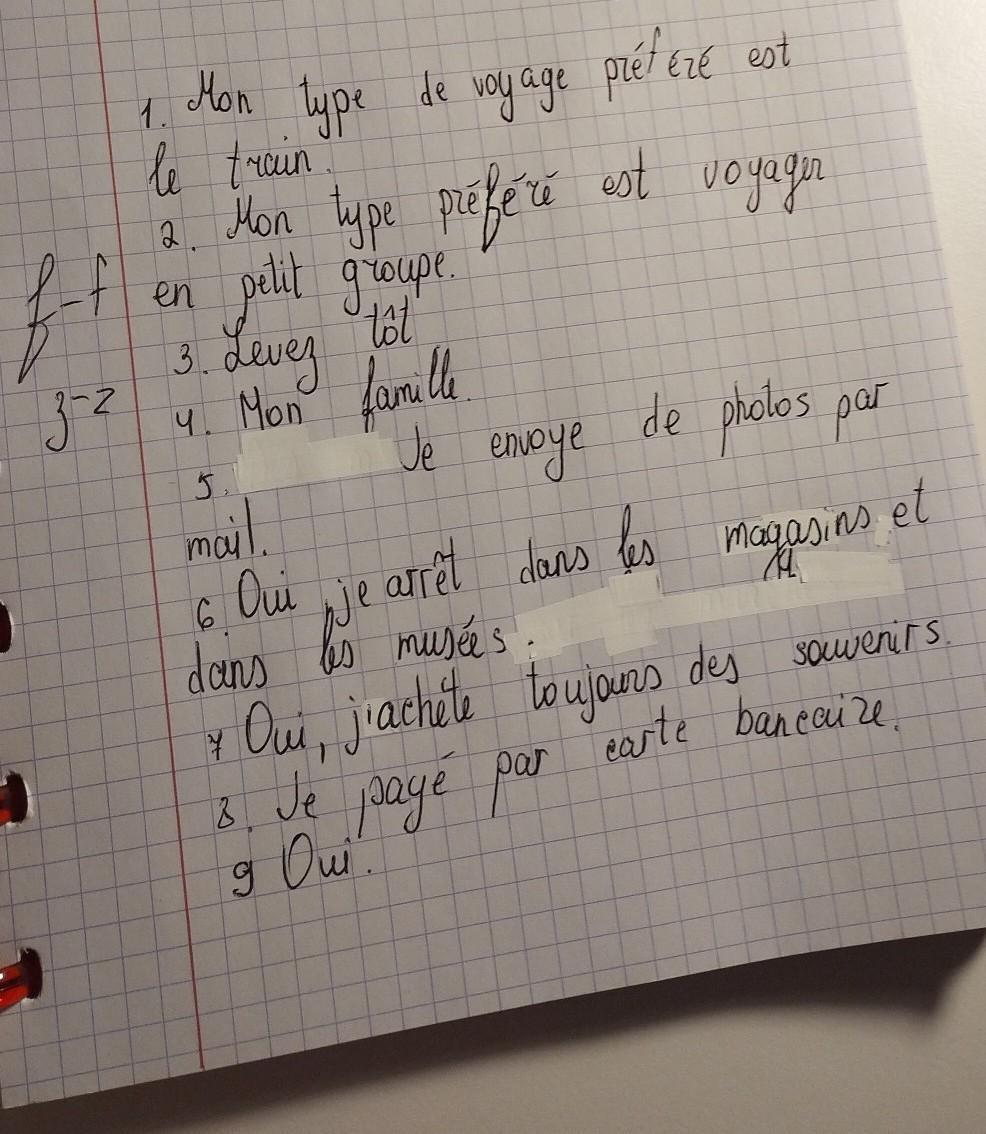 1. Mon type de voyage préféré est
le train.
2. Mon type préféré est voyager
en petit groupe.
f-f
3. Levez tôt
z-z
4. Mon famille.
5. Je envoye de photos par
mail.
6. Oui, je arrêt dans les magasins et
dans les musées.
7 Oui, j'achéte toujours des souvenirs.
8. Je payé par carte bancaire.
9 Oui.